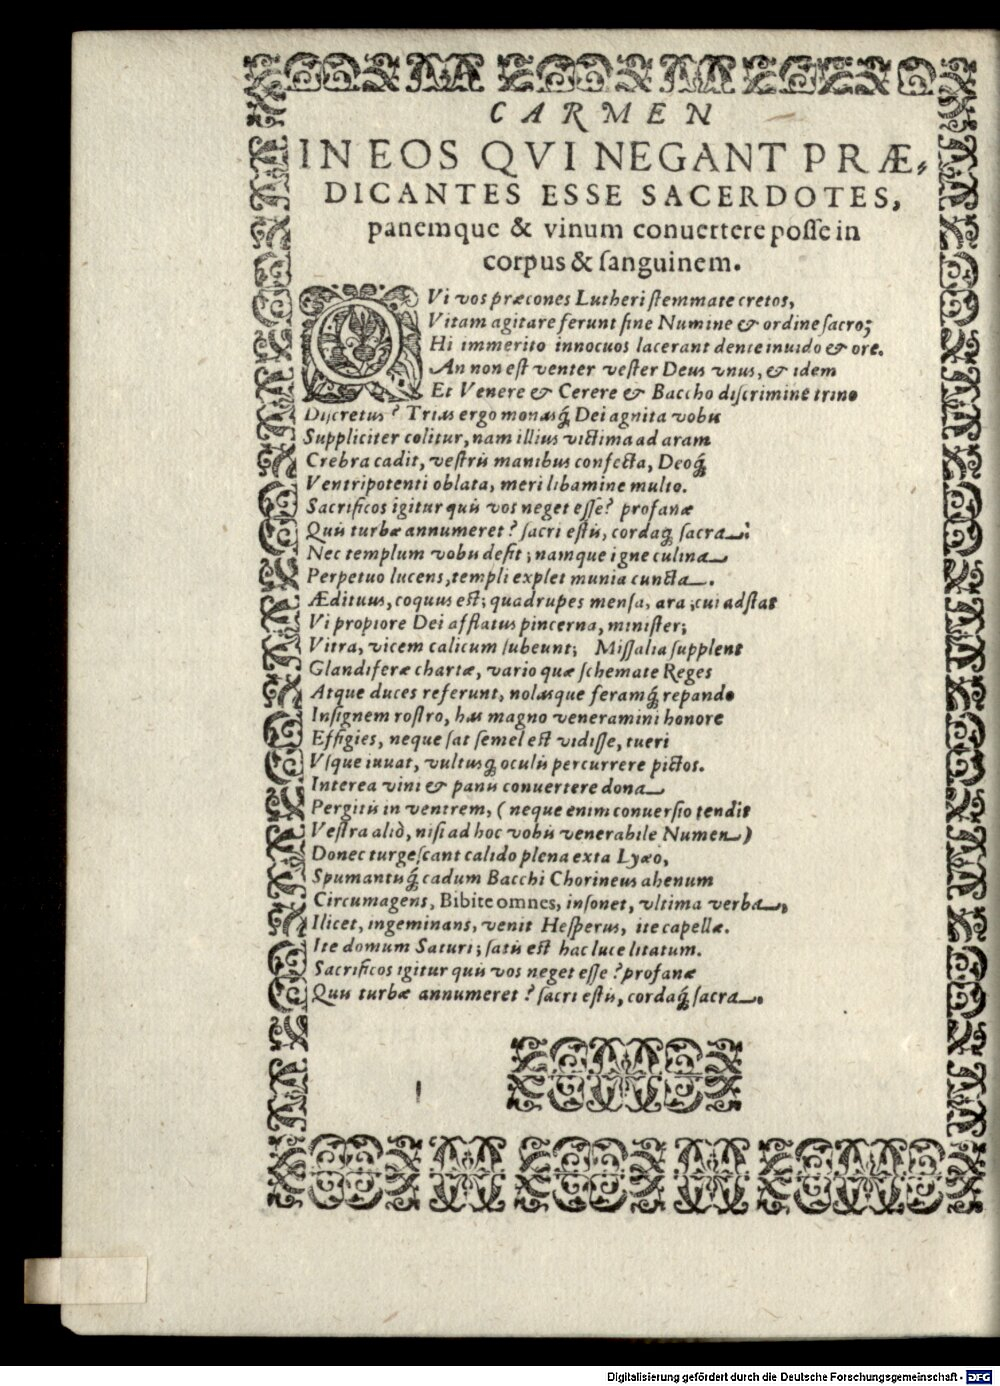 CARMEN
IN EOS QVI NEGANT PRÆ-
DICANTES ESSE SACERDOTES,
panemque & vinum conuertere posse in
corpus & sanguinem.
QVi vos præcones Lutheri stemmate cretos,
Vitam agitare ferunt sine Numine & ordine sacro;
Hi immerito innocuos lacerant dente inuido & ore.
An non est venter vester Deus vnus, & idem
Et Venere & Cerere & Baccho discrimine trino
Discretus? Trias ergo monasq́; Dei agnita vobis
Suppliciter colitur, nam illius victima ad aram
Crebra cadit, vestris manibus confecta, Deoq́;
Ventripotenti oblata, meri libamine multo.
Sacrificos igitur quis vos neget esse? profanæ
Quis turbæ annumeret? sacri estis, cordaq́; sacra.
Nec templum vobis desit; namque igne culina
Perpetuo lucens, templi explet munia cuncta.
Ædituus, coquus est; quadrupes mensa, ara; cui adstat
Vi propiore Dei afflatus pincerna, minister;
Vitra, vicem calicum subeunt; Missalia supplent
Glandiferæ chartæ, vario quæ schemate Reges
Atque duces referunt, nolasque feramq́; repando
Insignem rostro, has magno veneramini honore
Effigies, neque sat semel est vidisse, tueri
Vsque iuuat, vultusq́; oculis percurrere pictos.
Interea vini & panis conuertere dona
Pergitis in ventrem, (neque enim conuersio tendit
Vestra aliò, nisi ad hoc vobis venerabile Numen)
Donec turgescant calido plena exta Lyæo,
Spumantisq́; cadum Bacchi Chorineus ahenum
Circumagens, Bibite omnes, insonet, vltima verba,
Ilicet, ingeminans, venit Hesperus, ite capellæ.
Ite domum Saturi; satis est hac luce litatum.
Sacrificos igitur quis vos neget esse? profanæ
Quis turbæ annumeret? sacri estis, cordaq́; sacra.
Digitalisierung gefördert durch die Deutsche Forschungsgemeinschaft - DFG